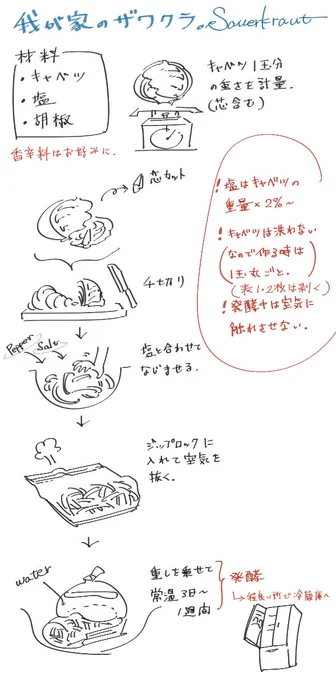 我が家のザワクラ。Sauerkraut
材料
・キャベツ
・塩
・胡椒
香辛料はお好みに。
キャベツ1玉分
の重さを計量。
(芯含む)
芯カット
!塩はキャベツの
重量×2%〜
!キャベツは洗わない
(なので作る時は
1玉丸ごと。
(表1・2枚は剥く)
!発酵中は空気に
触れさせない。
千切り
Pepper
Salt
塩と合わせて
なじませる。
ジップロックに
入れて空気を
抜く。
water
重しを乗せて
常温3日〜
1週間
発酵
→程良い所で冷蔵庫へ